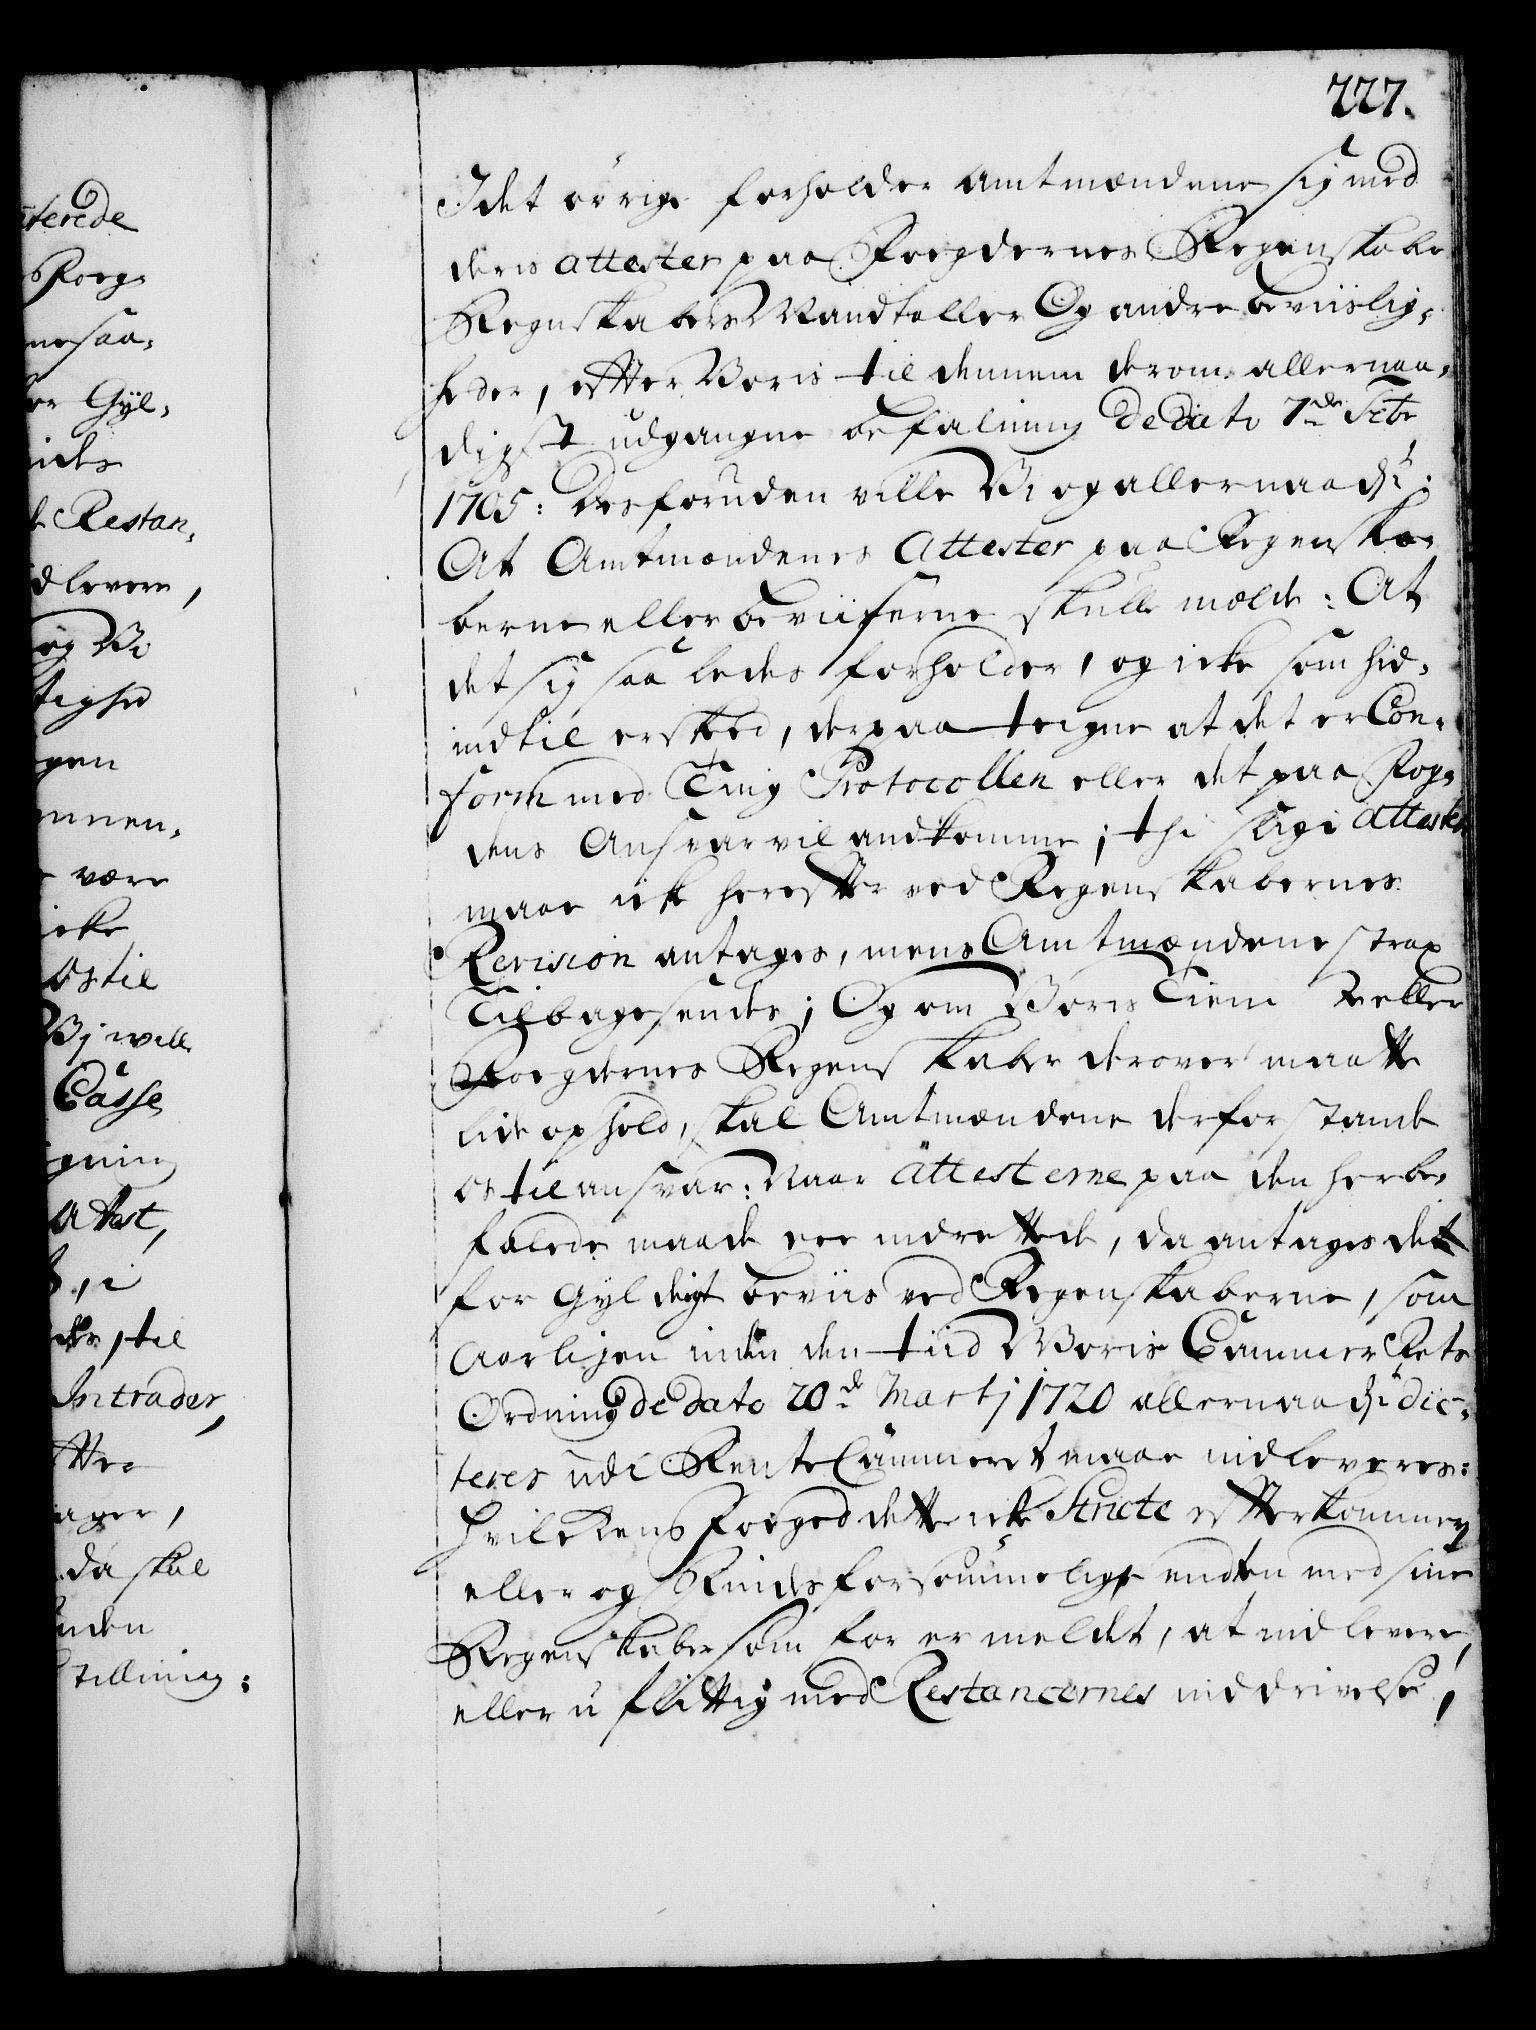 777.
Idet øvrige forholder Amtmændene sig med
deris attester paa Foegdernes Regenskabe
Regnskabers Mandtaller Og andre beviislig-
heder, effter Voris til dennem derom allernaa-
digst udgangne befalning De Dato 7de
1705: Desforuden ville Vi og allernaadst:
At Amtmændenes Attester paa Regenska-
berne eller beviiserne skulle melde: At
det sig saa ledes forholder, og icke som hid-
indtil er skeed, derpaa teigne at det er Con-
form med Ting Protocollen eller det paa Fog-
dens Ansvar vil andkomme; thi slige attester
maae icke herefter ved Regenskabernes
Revision antages, mens Amtmændene strax
Tilbagesendes; Og om Voris Tieniste eller
Foegdernes Regenskaber derover maatte
lide ophold, skal Amtmændene derfor stande
os til ansvar: Naar Attesterne paa den herbe-
falede maade ere indrettede, da antages det
for Gyldigt beviis ved Regenskaberne, som
Aarligen inden den tiid Voris Cammer Rets
Ordning de dato 20de Martj 1720 allernaadst dic-
teres udi Rente Cammeret maae indleveres:
Hvilckens Foeged dette icke Stricte effterkommer
eller og findes forsømmelige endten med sine
Regenskaber som for er meldet, at indlevere,
eller uflittig med Restancernes inddrivelse,

terede
Foeg-
nesaa-
or Gyl-
Restan-
dlevere,
og Vi
gen
nnen-
være
icke
os til
Vj will
Casse
gning
, til
Intrader,
da skal
inden
stilling: